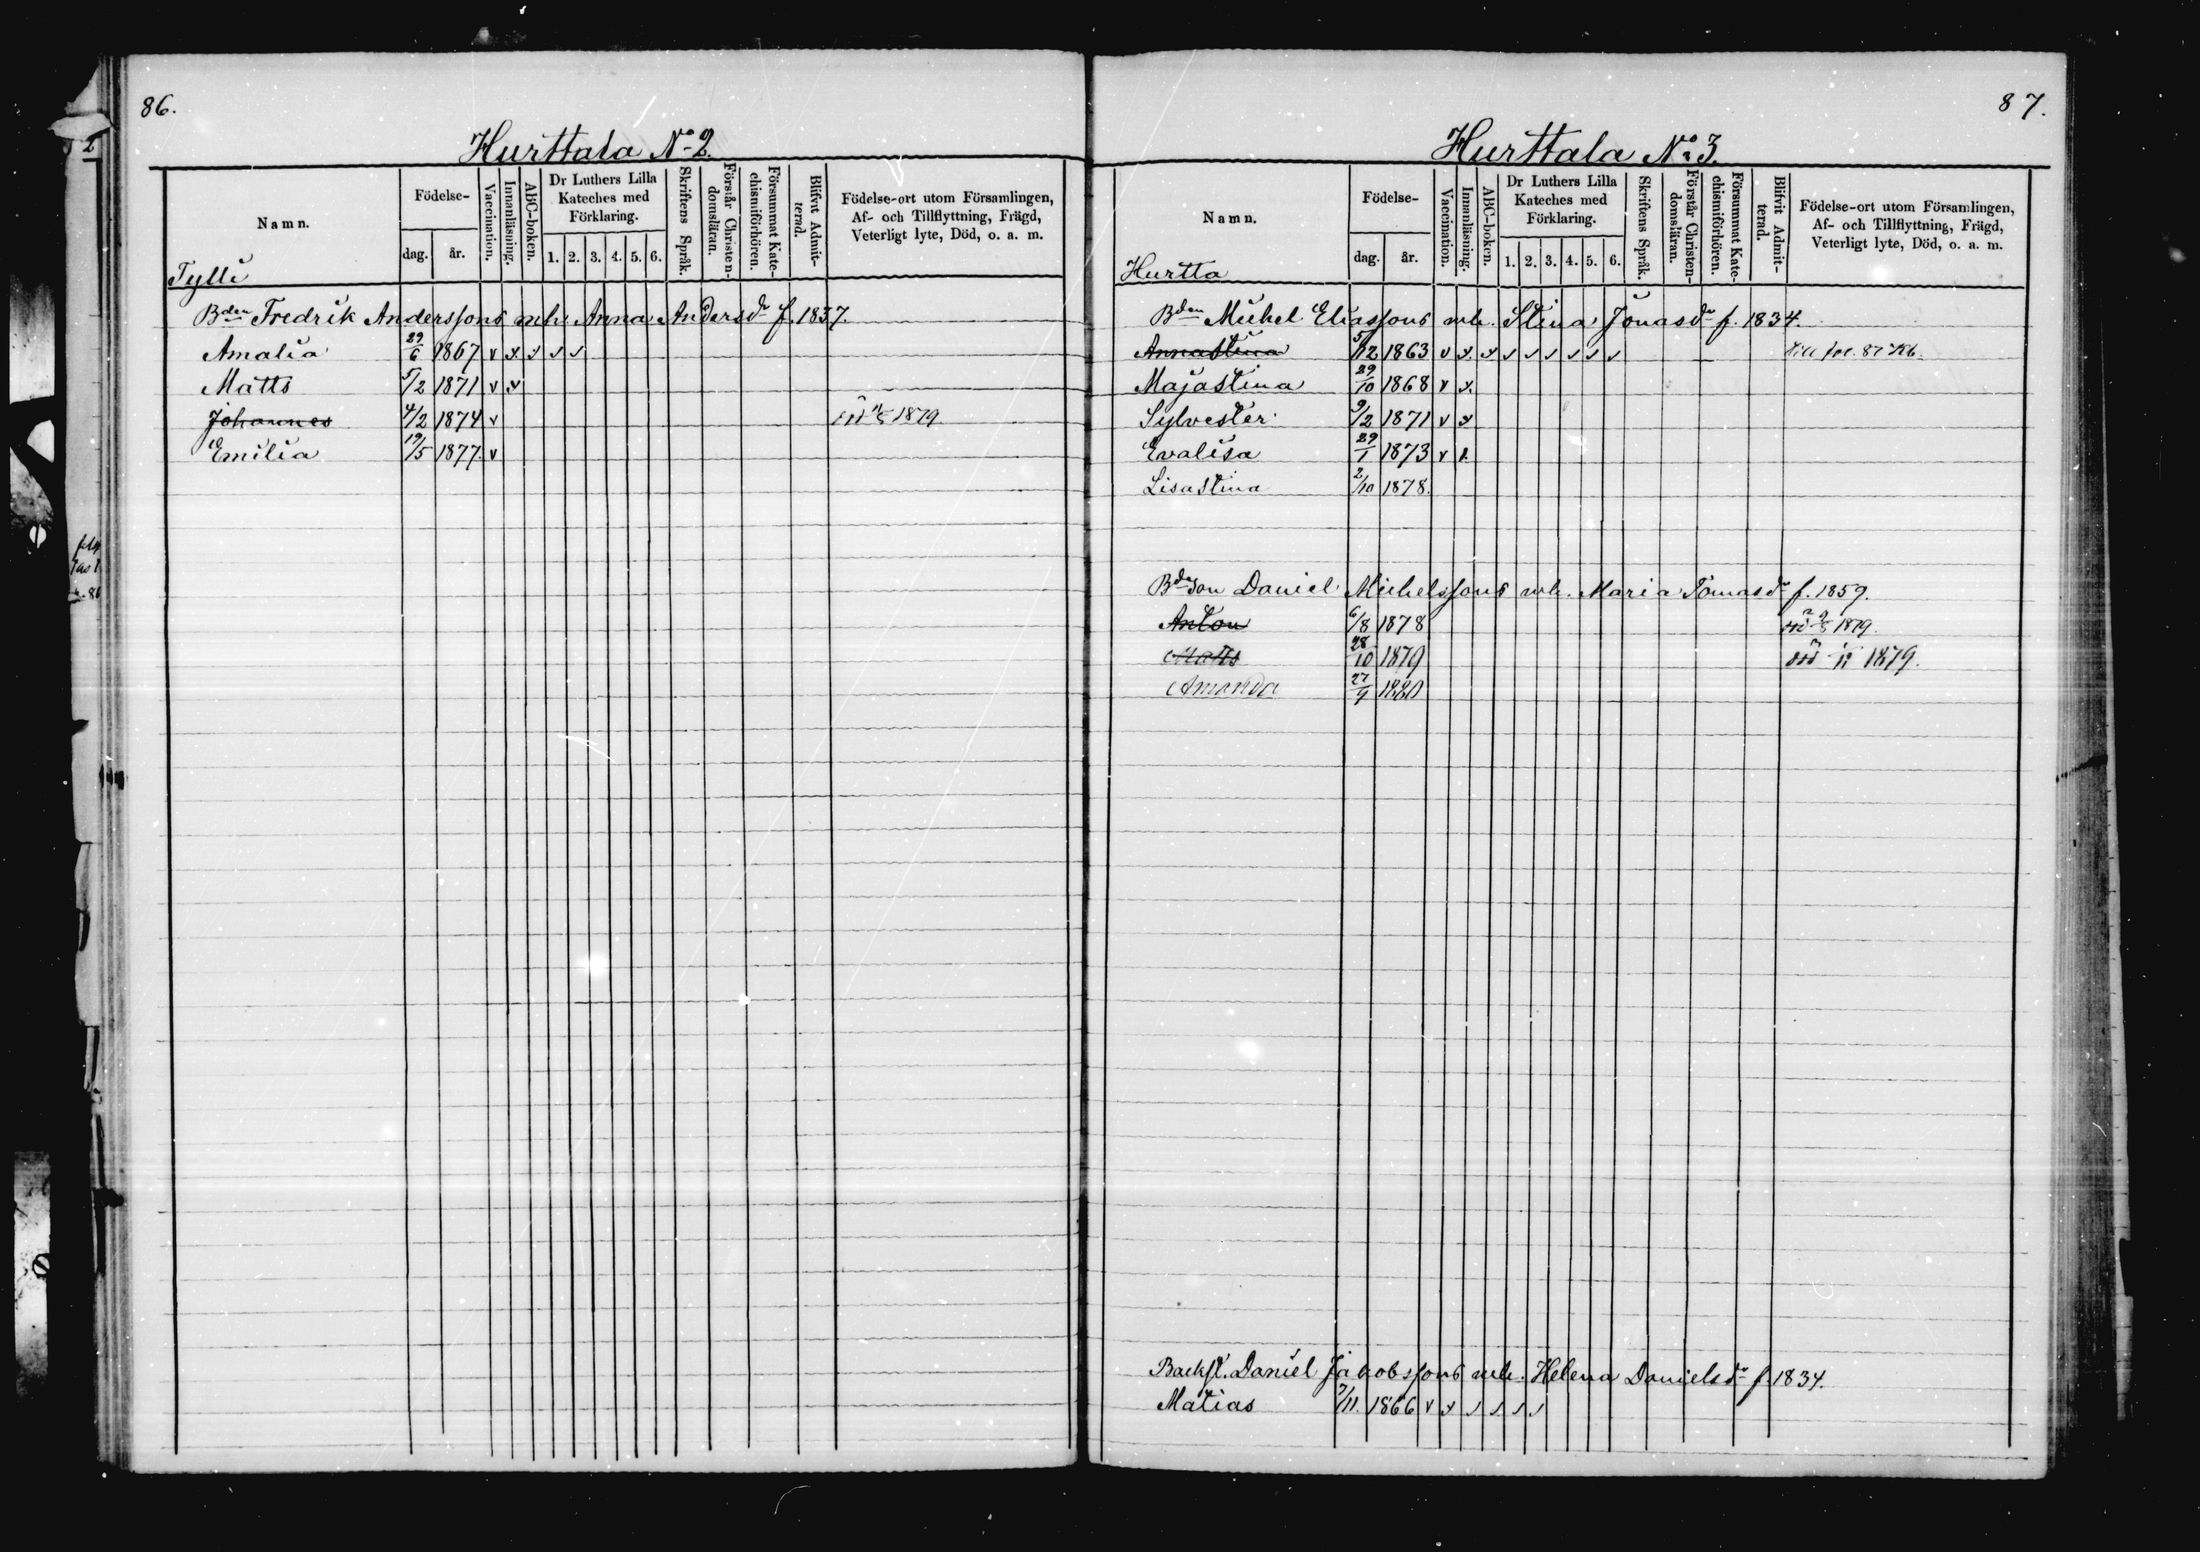 86.
Hurttala No 2.
Namn.
Födelse-
dag.
år.
Vaccination.
Innanläsning.
ABC-boken.
Dr Luthers Lilla
Kateches med
Förklaring.
1. 2. 3. 4. 5. 6.
Skriftens Språk.
Förstår Christen-
domsläran.
Försummat Kate-
chismiförhören.
Blifvit Admit-
terad.
Födelse-ort utom Församlingen,
Af- och Tillflyttning, Frägd,
Veterligt lyte, Död, o. a. m.
Tylli
Bden Fredrik Anderssons mh. Anna Andersdr f. 1837.
Amalia 29/6 1867 v x v v v
Matts 5/2 1871 v x
Johannes 4/2 1874 v död 1879.
Emilia 19/5 1877. v
87.
Hurttala No 3.
Namn.
Födelse-
dag.
år.
Vaccination.
Innanläsning.
ABC-boken.
Dr Luthers Lilla
Kateches med
Förklaring.
1. 2. 3. 4. 5. 6.
Skriftens Språk.
Förstår Christen-
domsläran.
Försummat Kate-
chismiförhören.
Blifvit Admit-
terad.
Födelse-ort utom Församlingen,
Af- och Tillflyttning, Frägd,
Veterligt lyte, Död, o. a. m.
Hurtta
Bden Mickel Eliassons mh. Stina Jönasdr f. 1834.
Annastina 5/12 1863 v x x v v v v v v Till fol. 87
Majastina 29/10 1868 v x.
Sylvester 9/2 1871 v x
Evalisa 29/1 1873 v
Lisastina 2/10 1878.
Bdeson Daniel Mickelssons mh. Maria Tomasdr f. 1859.
Anton 6/8 1878 död 1879.
Matts 28/10 1879 död 1879.
Amanda 27/9 1880
Backst. Daniel Jakobssons mh. Helena Danielsdr f. 1834.
Matias 7/11. 1866 v x v v v v